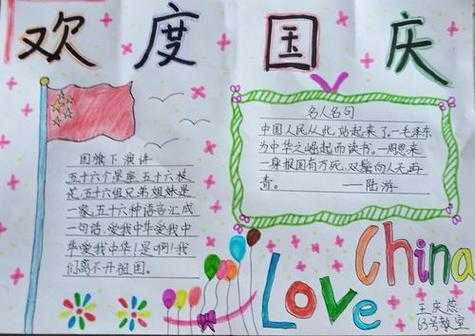 欢度国庆
国旗下演讲
五十六个星座,五十六枝
花,五十六组兄弟姐妹是
一家,五十六种语言汇成
一句话,爱我中华爱我中
华爱我中华!是啊!我
们离不开祖国。
名人名句
中国人民从此站起来了——毛泽东
为中华之崛起而读书。——周恩来
一身报国有万死,双鬓向人无再
青。——陆游
Love China
王庆燕
63号教室